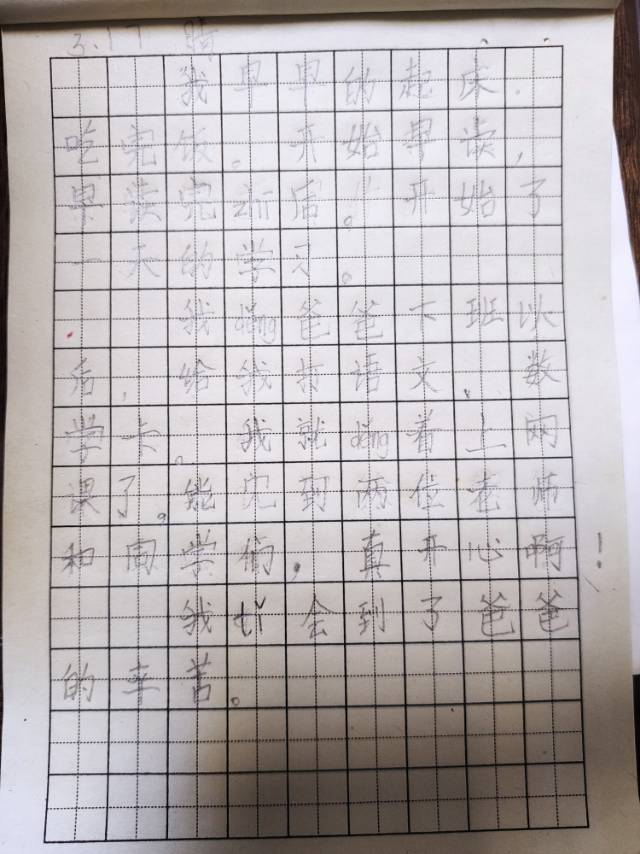 3.17 晴
我早早的起床.
吃完饭。开始早读,
早读完zhī后。开始了
一天的学习。
我děng爸爸下班以
后,给我打语文、数
学卡。我就děng着上网
课了。能见到两位老师
和同学们,真开心啊!
我tǐ会到了爸爸
的幸苦。